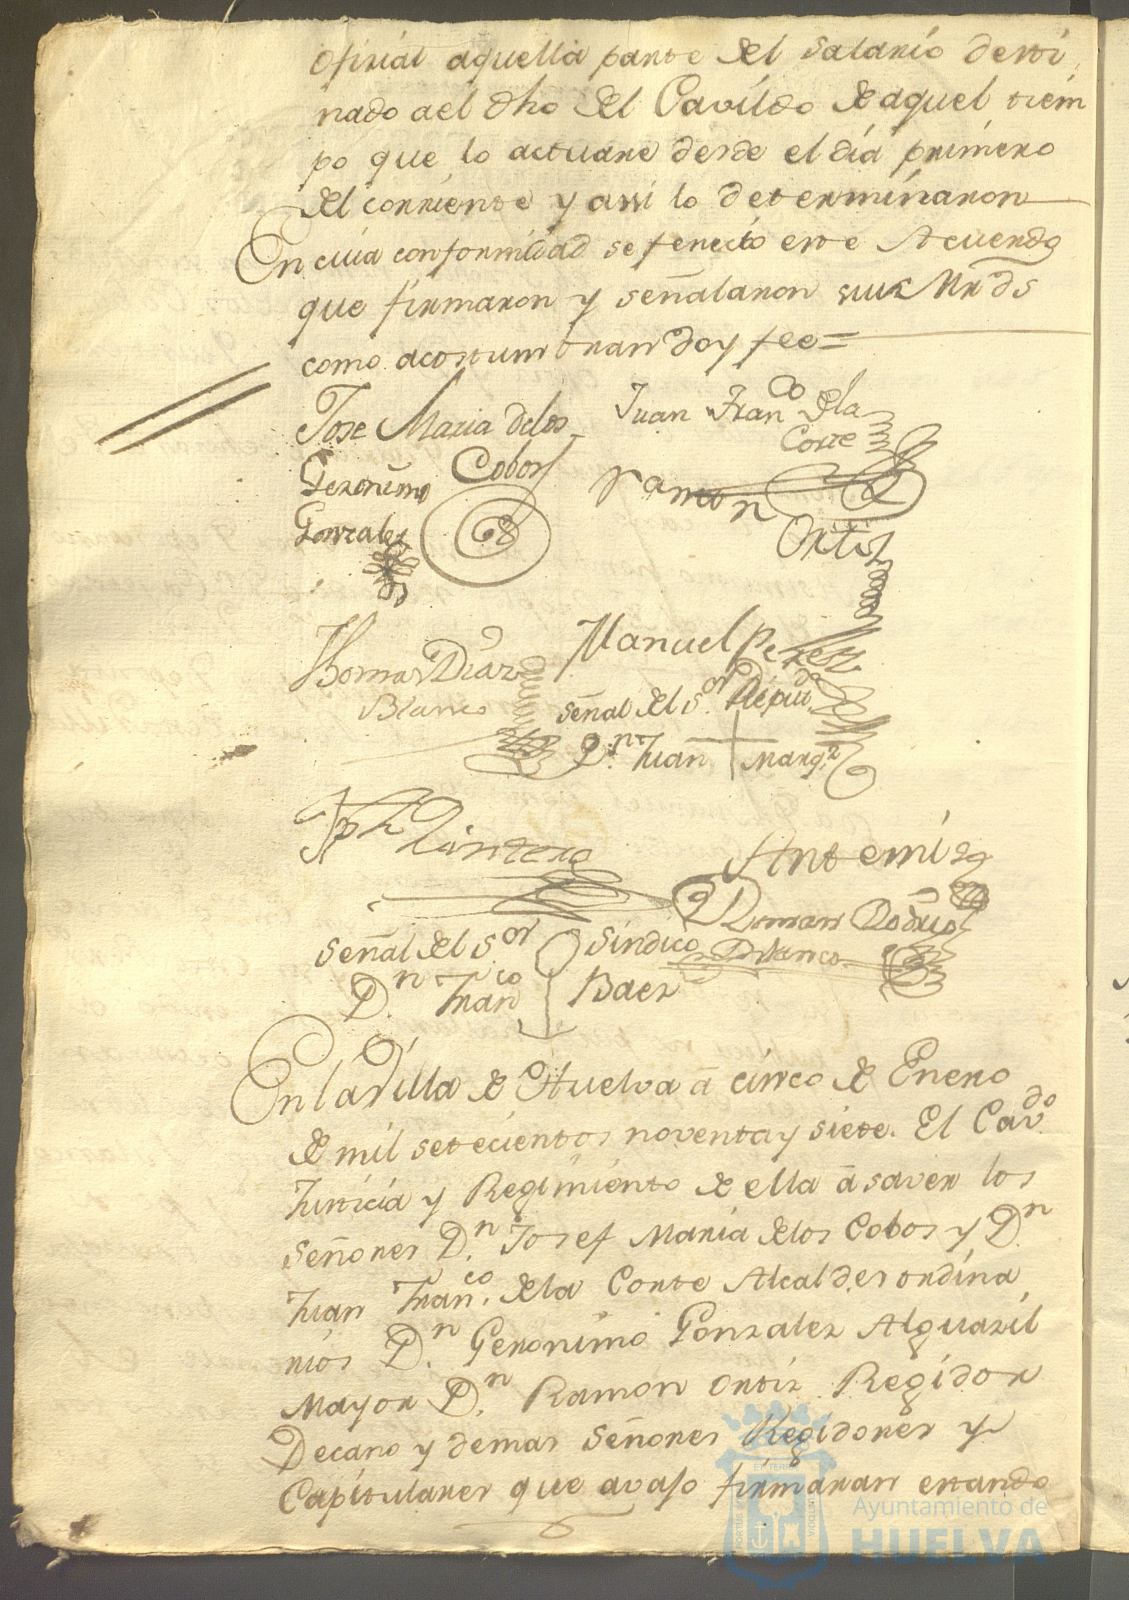 oficial aquella parte del salario desti
nado a el dho del Cavildo de aquel tiem
po que lo actuare desde el dia primero
del corriente y assi lo determinaron
En cuia conformidad se fenecio este Acuerdo
que firmaron y señalaron sus Mrds
como acostumbran doy fee =
Jose Maria de los
Cobos
Juan Franco de la
Corte
Geronimo
Gonzales
Ramon
Ortiz
Thomas Diaz
Blanco
Manuel Perez
Señal del Sor Diputdo
Dn Juan Marqz
Jph Quintero
Antemi
Roman Rodrio
Blanco
Señal del Sor Sindico
Dn Franco Baez
En la Villa de Huelva á cinco de Enero
de mil setecientos noventa y siete. El Cavdo
Justicia y Regimiento de ella á saver los
Señores Dn Josef Maria de los Cobos y Dn
Juan Franco de la Corte Alcaldes ordina
rios Dn Geronimo Gonzalez Alguazil
Mayor Dn Ramon Ortiz Regidor
Decano y demas Señores Regidores y
Capitulares que avajo firmaran estando
Ayuntamiento de
HUELVA